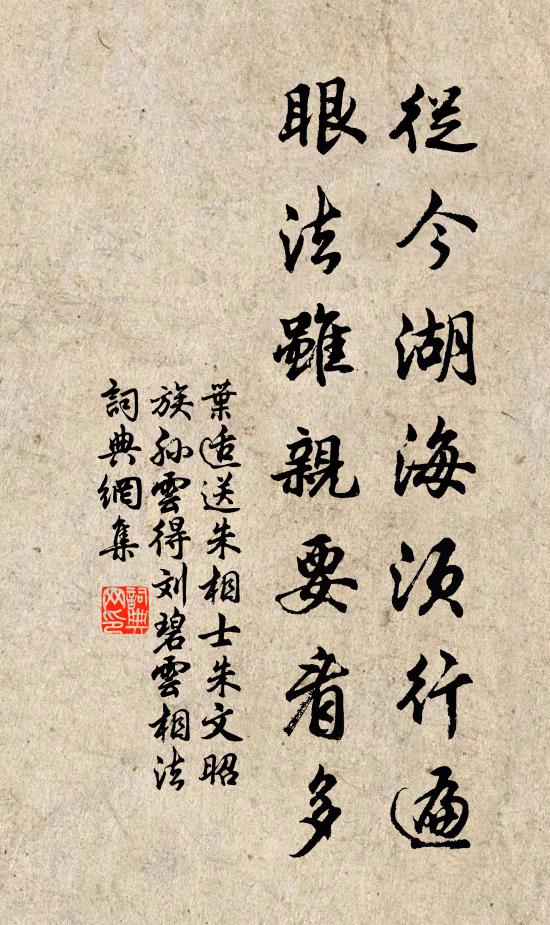 從今湖海須行遍
眼法雖親要看多
葉適送朱相士朱文昭
族孫雲得刘碧雲相法
詞典網集
詞典
网印